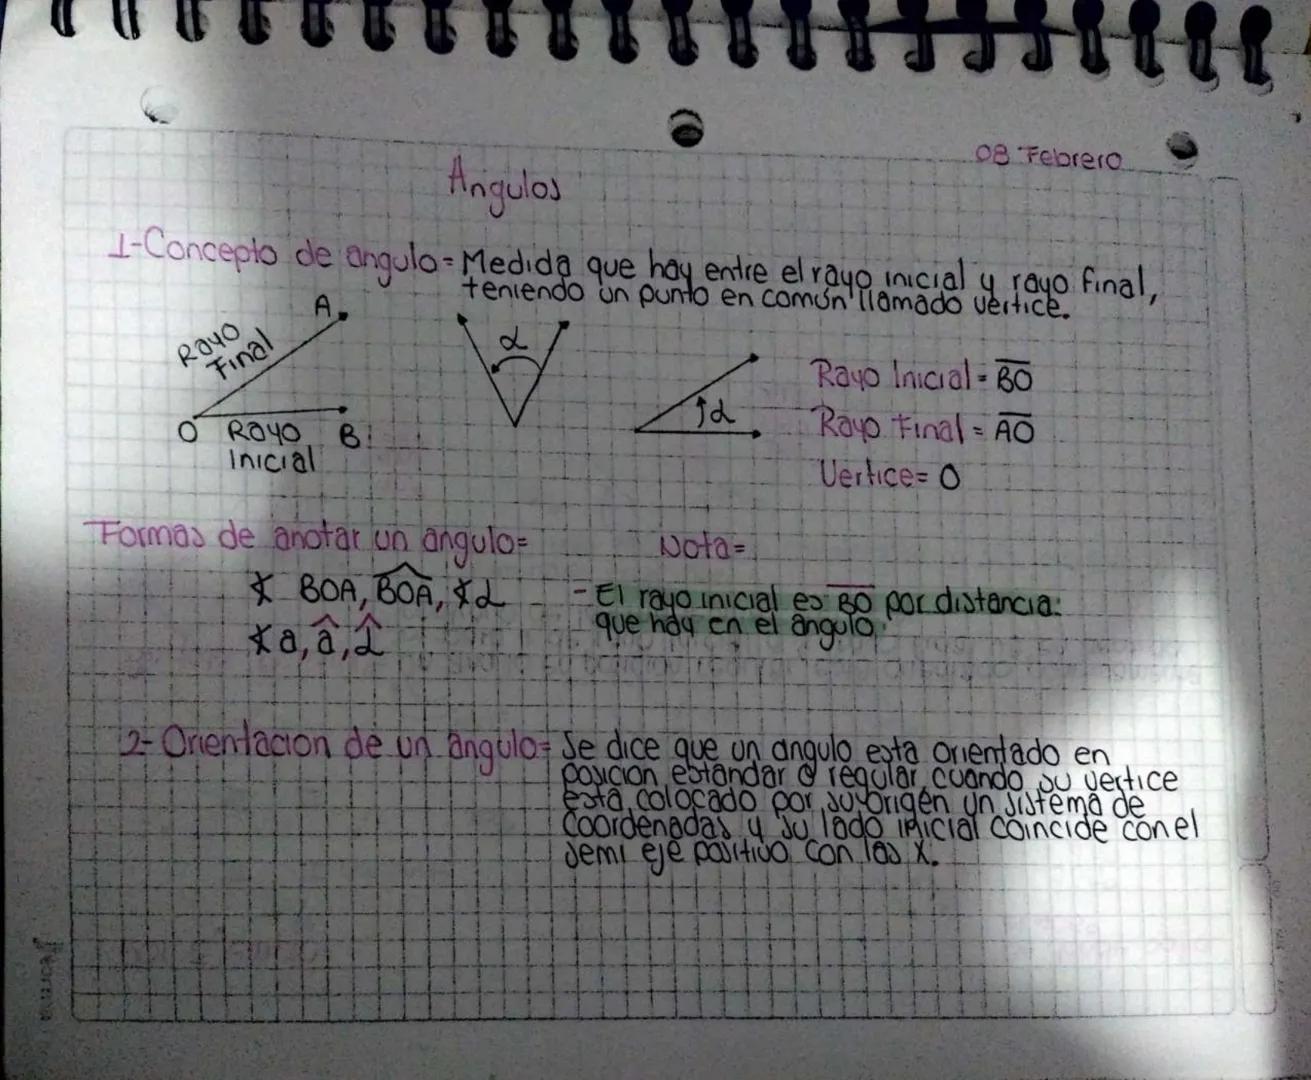 08 Febrero
Angulos
1-Concepto de angulo= Medida que hay entre el rayo inicial y rayo final,
teniendo un punto en común llamado vertice.
A
Rayo
Final
O Rayo B
Inicial
α
α
Rayo Inicial = B̅O̅
Rayo Final = A̅O̅
Vertice= O
Formas de anotar un angulo=
∡ BOA, BOÂ, ∡α
∡a, â, α̂
Nota=
- El rayo inicial es B̅O̅ por distancia
que hay en el ángulo.
2- Orientacion de un angulo= Se dice que un angulo esta orientado en
posicion estandar o regular cuando su vertice
está colocado por su origen un sistema de
coordenadas y su lado inicial coincide con el
semi eje positivo con las X.